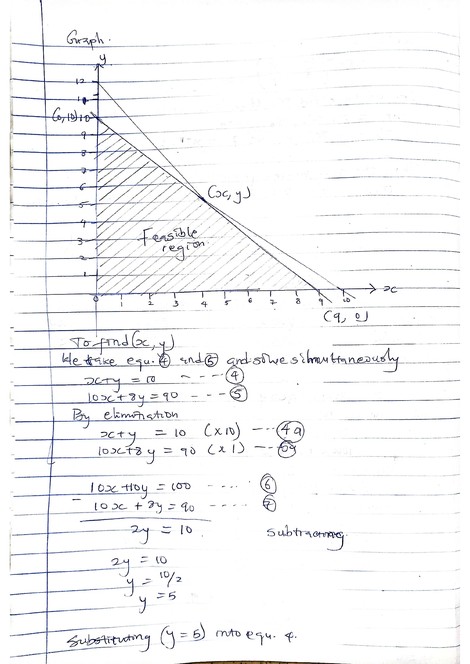 Graph.
y
12
11
(0,10) 10
9
8
7
6
5
4
3
2
1
0 1 2 3 4 5 6 7 8 9 10 x
(x,y)
Feasible
region
(9, 0)
To find (x, y)
We take equ. ④ and ⑤ and solve simultaneously
x+y = 10 ---- ④
10x+8y = 90 --- ⑤
By elimination
x+y = 10 (x10) --- 4a
10x+8y = 90 (x1) --- 5a
10x+10y = 100 ---- ⑥
- 10x + 8y = 90 ---- ⑦
2y = 10 subtracting
2y = 10
y = 10/2
y = 5
Substituting (y = 5) into equ. 4.